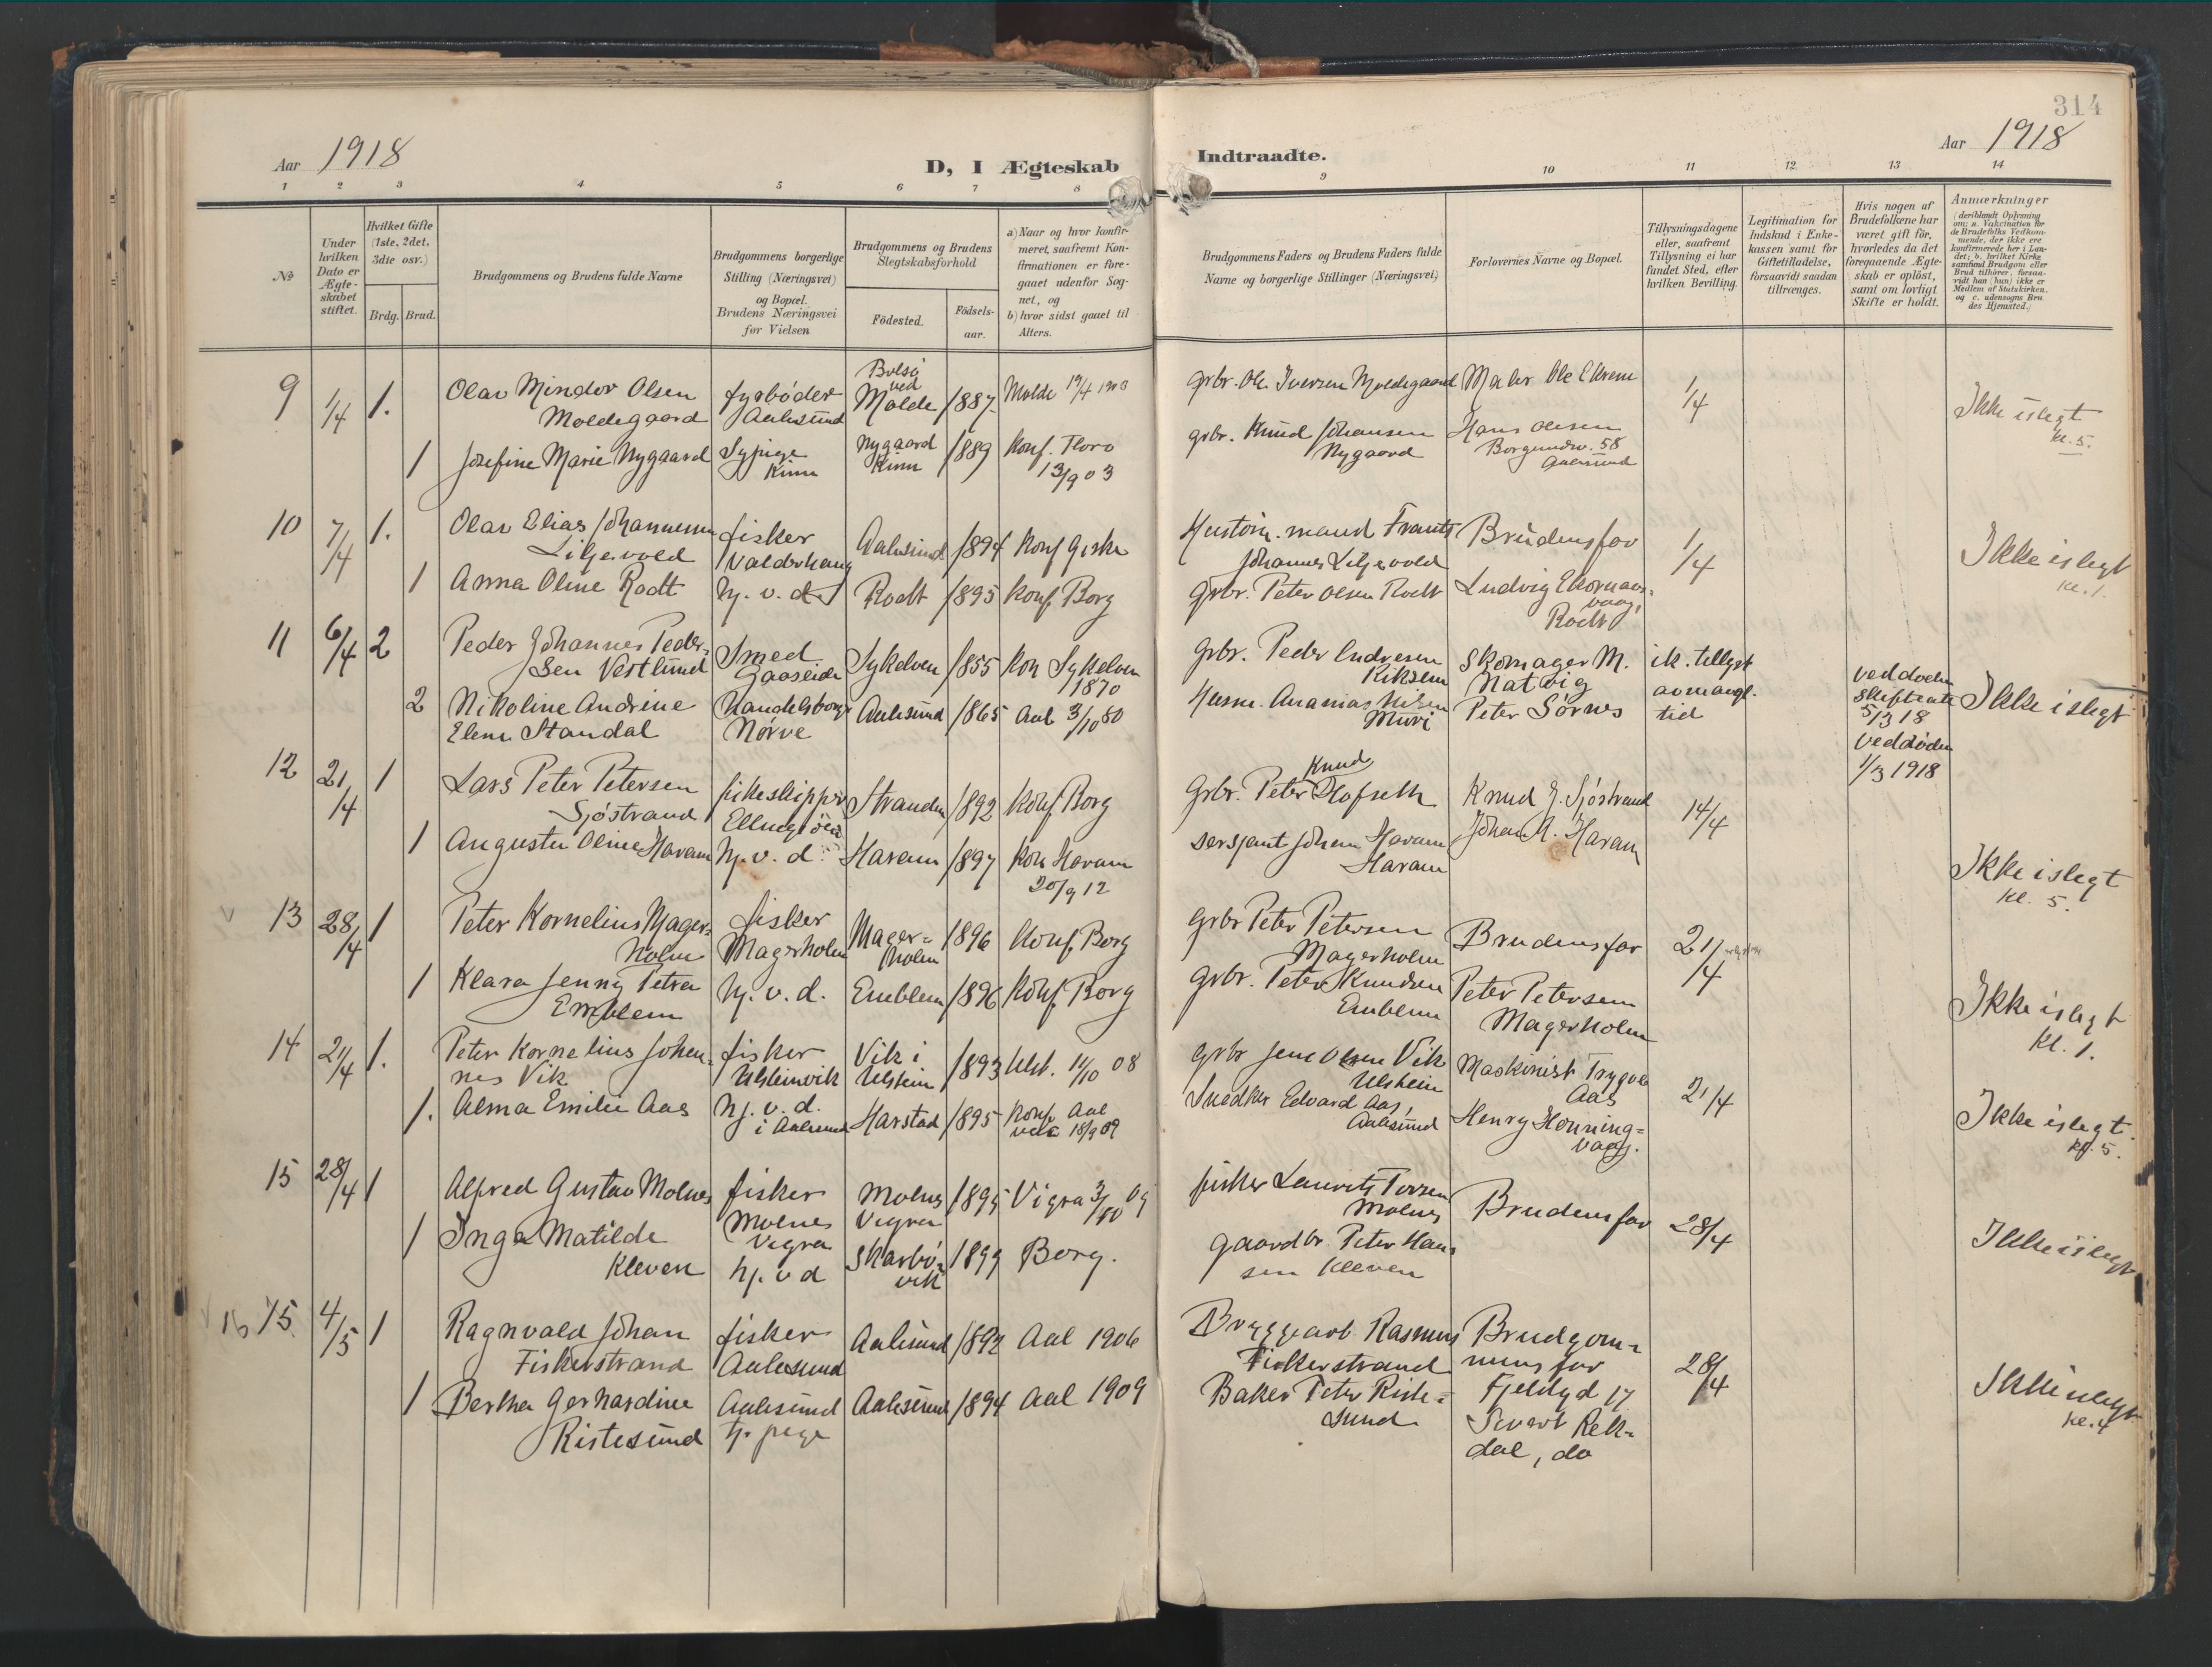 314
Aar 1918
D, I Ægteskab
Indtraadte.
Aar 1918
1 2 3 4 5 6 7 8 9 10 11 12 13 14
No
Under hvilken Dato er Ægte-skabet stiftet.
Hvilket Gifte (1ste, 2det, 3die osv.)
Brdg. Brud.
Brudgommens og Brudens fulde Navne
Brudgommens borgerlige Stilling (Næringsvei) og Bopæl. Brudens Næringsvei før Vielsen
Brudgommens og Brudens Slegtskabsforhold
Fødested.
Fødsels-aar.
a) Naar og hvor konfir-meret, saafremt Kon-firmationen er fore-gaaet udenfor Sog-net, og
b) hvor sidst gaaet til Alters.
Brudgommens Faders og Brudens Faders fulde Navne og borgerlige Stillinger (Næringsvei)
Forlovernes Navne og Bopæl.
Tillysningsdagene eller, saafremt Tillysning ei har fundet Sted, efter hvilken Bevilling.
Legitimation for Indskud i Enke-kassen samt for Giftetilladelse, forsaavidt saadan tiltrænges.
Hvis nogen af Brudefolkene har været gift før, hvorledes da det foregaaende Ægte-skab er opløst, samt om lovligt Skifte er holdt.
Anmærkninger
(deriblandt Oplysning om: a. Vakcination for de Brudefolks Vedkom-mende, der ikke ere konfirmerede her i Lan-det; b. hvilket Kirke samfund Brudgom eller Brud tilhører, forsaa-vidt han (hun) ikke er Medlem af Statskirken. og c. udensogns Bru des Hjemsted.)
9 1/4 1. Olav Mindor Olsen Moldegaard fyrbøder Aalesund Bolsø ved Molde 1887 Molde 19/4 1903 grbr. Ole Iversen Moldegaard Maler Ole Ekrem 1/4 Ikke i slegt kl. 5.
1 Josefine Marie Nygaard Sypige Kinn Nygaard Kinn 1889 Konf. Floro 13/9 03 grbr. Knud Johansen Nygaard Hans Olesen Borgundv. 58 Aalesund
10 7/4 1. Olav Elias Johannessen Liljevold fisker Valderhaug Aalesund 1894 Konf Giske mand Frants Johannes Liljevold Brudens far 1/4 Ikke i slegt kl. 1.
1 Anna Oline Rodt hj. v. d. Rodt 1895 Konf. Borg grbr. Peter Olsen Rodt Ludvig Rodt
11 6/4 2 Peder Johannes Peder-sen Vestlund Smed Gaaseide Sykelven 1855 Kon Sykelven 1870 Grbr. Peder Endresen Skomager M. Natvig ik. tillyst av mangl. tid ved døden skifteatt 5/3 18 Ikke i slegt
2 Nikoline Andrine Elene Standal Nørve Aalesund 1865 Aal 3/10 80 Husm. Ananias Peter Sørnes ved døden 1/3 1918
12 21/4 1 Lars Peter Petersen Sjøstrand fiskeskipper Ellingsøen Stranden 1892 Konf Borg Grbr. Peter Knud Hofseth Knud J. Sjøstrand 14/4 Ikke i slegt kl. 5.
1 Augusta Oline Haram hj. v. d. Haram 1897 Kon Haram 20/9 12 sersjant Johan Haram Haram Johan A. Haram
13 28/4 1 Peter Kornelius Mager-holm fisker Magerholm Mager-holm 1896 Konf Borg Grbr Peter Petersen Magerholm Brudens far 21/4 Ikke i slegt kl. 1.
1 Klara Jenny Petra Emblem hj. v. d. Emblem 1896 Konf Borg Grbr. Peter Knudsen Emblem Peter Petersen Magerholm
14 21/4 1. Peter Kornelius Johan-nes Vik fisker Ulsteinvik Vik i Ulstein 1893 Ulst. 11/10 08 Grbr Jens Olsen Vik Ulstein Maskinist Trygve Aas 21/4 Ikke i slegt. kl. 5.
1. Alma Emilie Aas hj. v. d. i Aalesund Harstad 1895 Konf Aal 18/9 09 Snedker Edvard Aas, Aalesund Henry Honning-vaag.
15 28/4 1 Alfred Gustav Molnes fisker Molnes Vigra Molnes Vigra 1895 Vigra 3/10 09 fisker Laurits Molnes Brudens far 28/4 Ikke i slegt
1 Inga Matilde Kleven hj. v d Skarbø-vik 1899 Borg. gaardbr. Peter Han-sen Kleven
16 15 4/5 1 Ragnvald Johan Fiskerstrand fisker Aalesund Aalesund 1892 Aal 1906 Bryggearb Rasmus Fiskerstrand Brudgom-mens far Fjeldgd 17 28/4 Ikke i slegt kl. 4
1 Bertha Gerhardine Ristesund Aalesund tj. pige Aalesund 1894 Aal 1909 Baker Peter Riste-sund Sivert Rek-dal, do